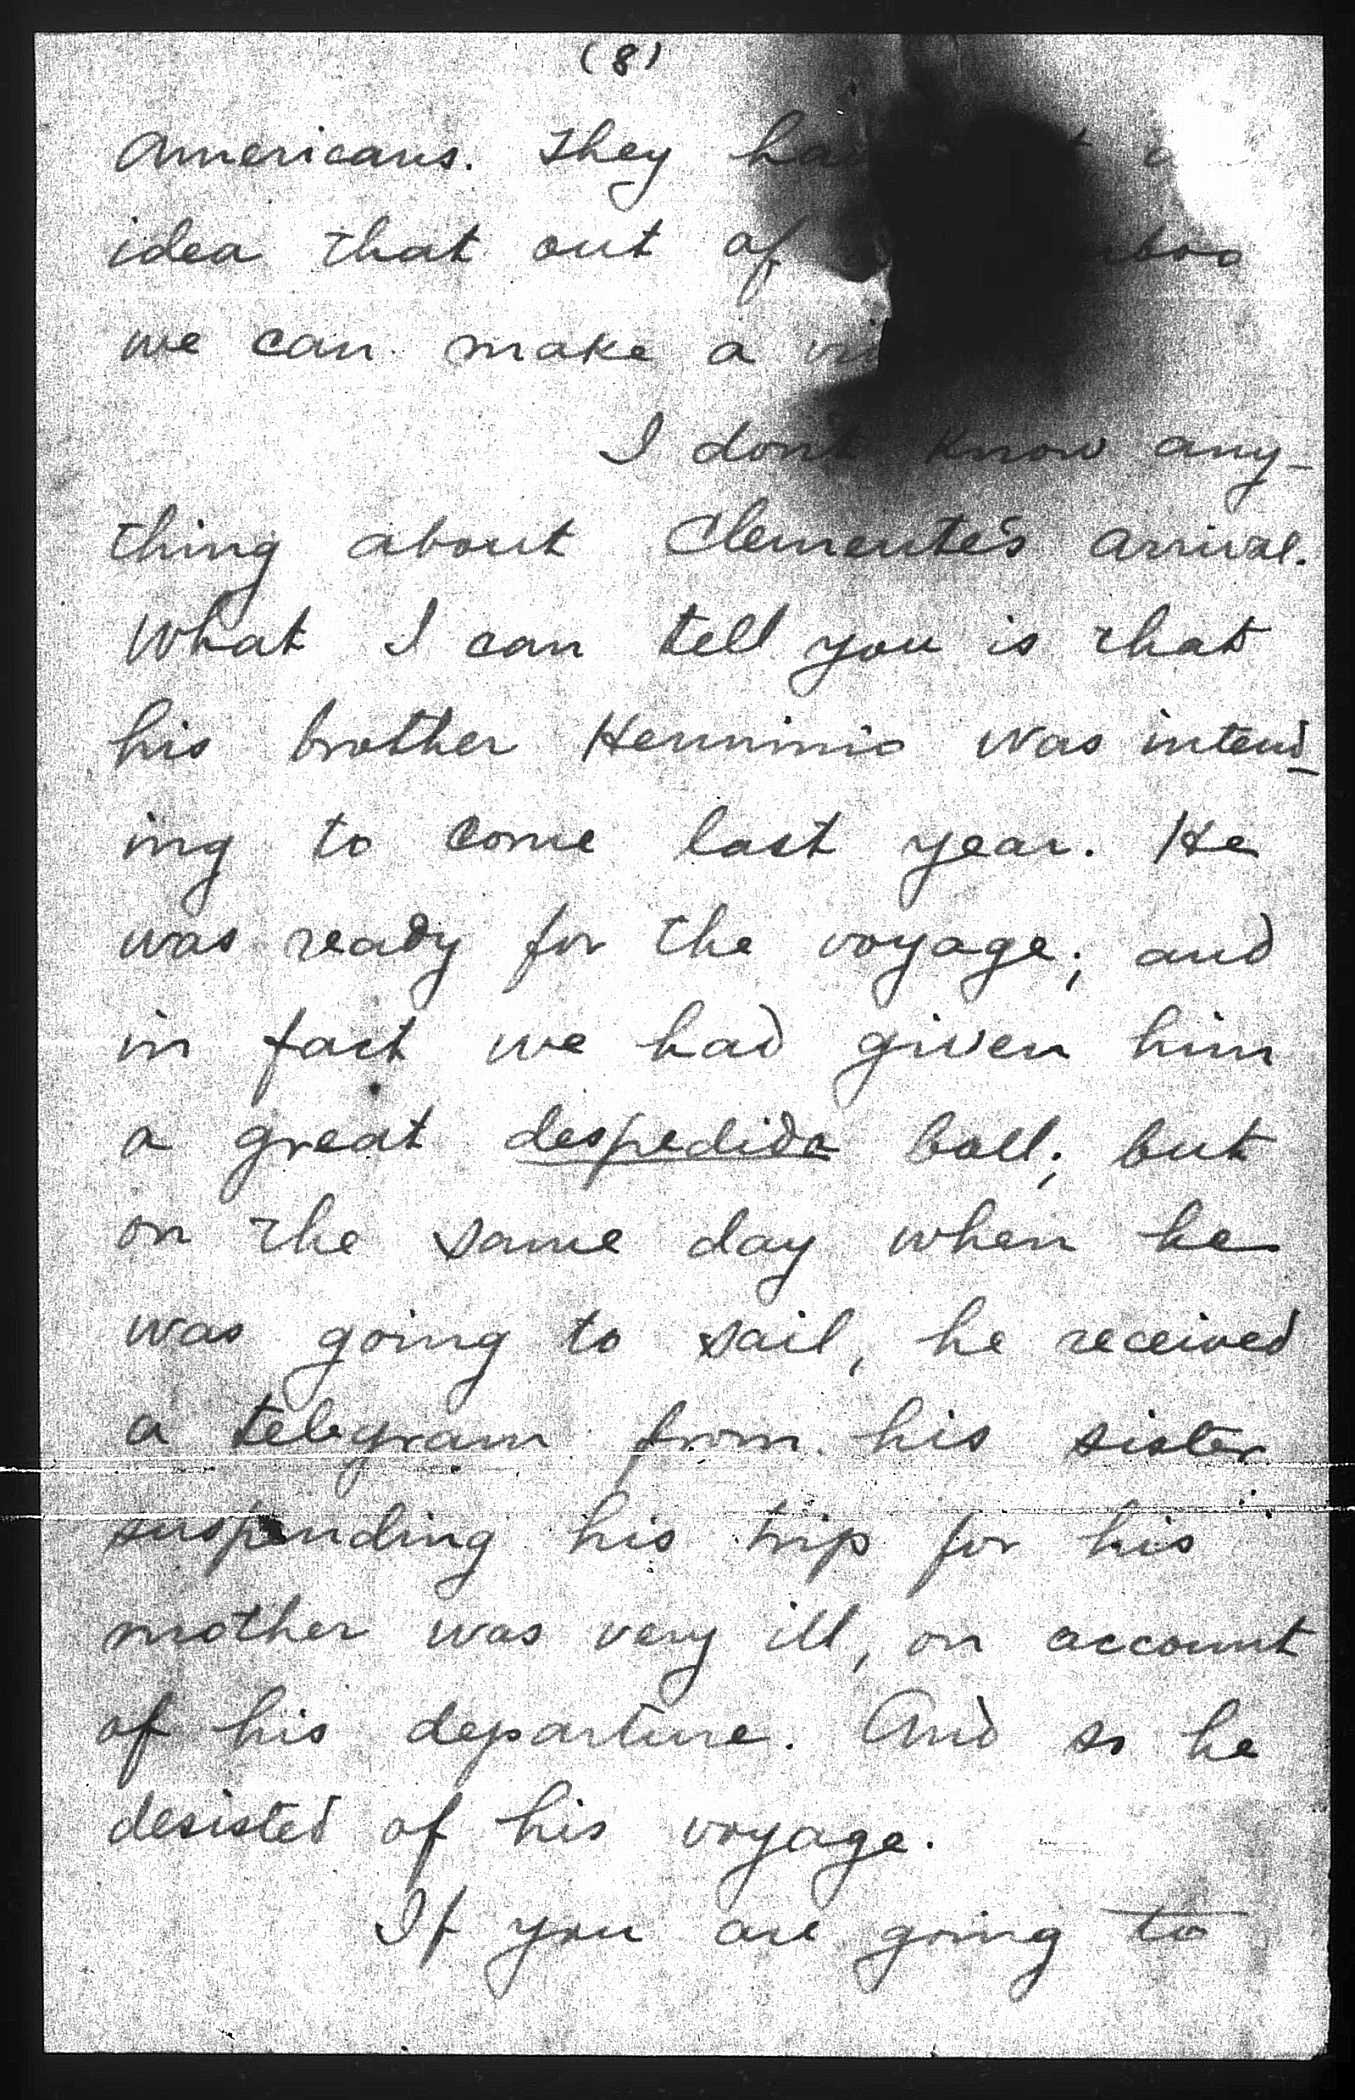 (8)
Americans. They
idea that out of
we can make a
I don't know any-
thing about Clemente's arrival.
What I can tell you is that
his brother Herminio was intend-
ing to come last year. He
was ready for the voyage; and
in fact we had given him
a great despedida ball; but
on the same day when he
was going to sail, he received
a telegram from his sister
suspending his trip for his
mother was very ill, on account
of his departure. And so he
desisted of his voyage.
If you are going to